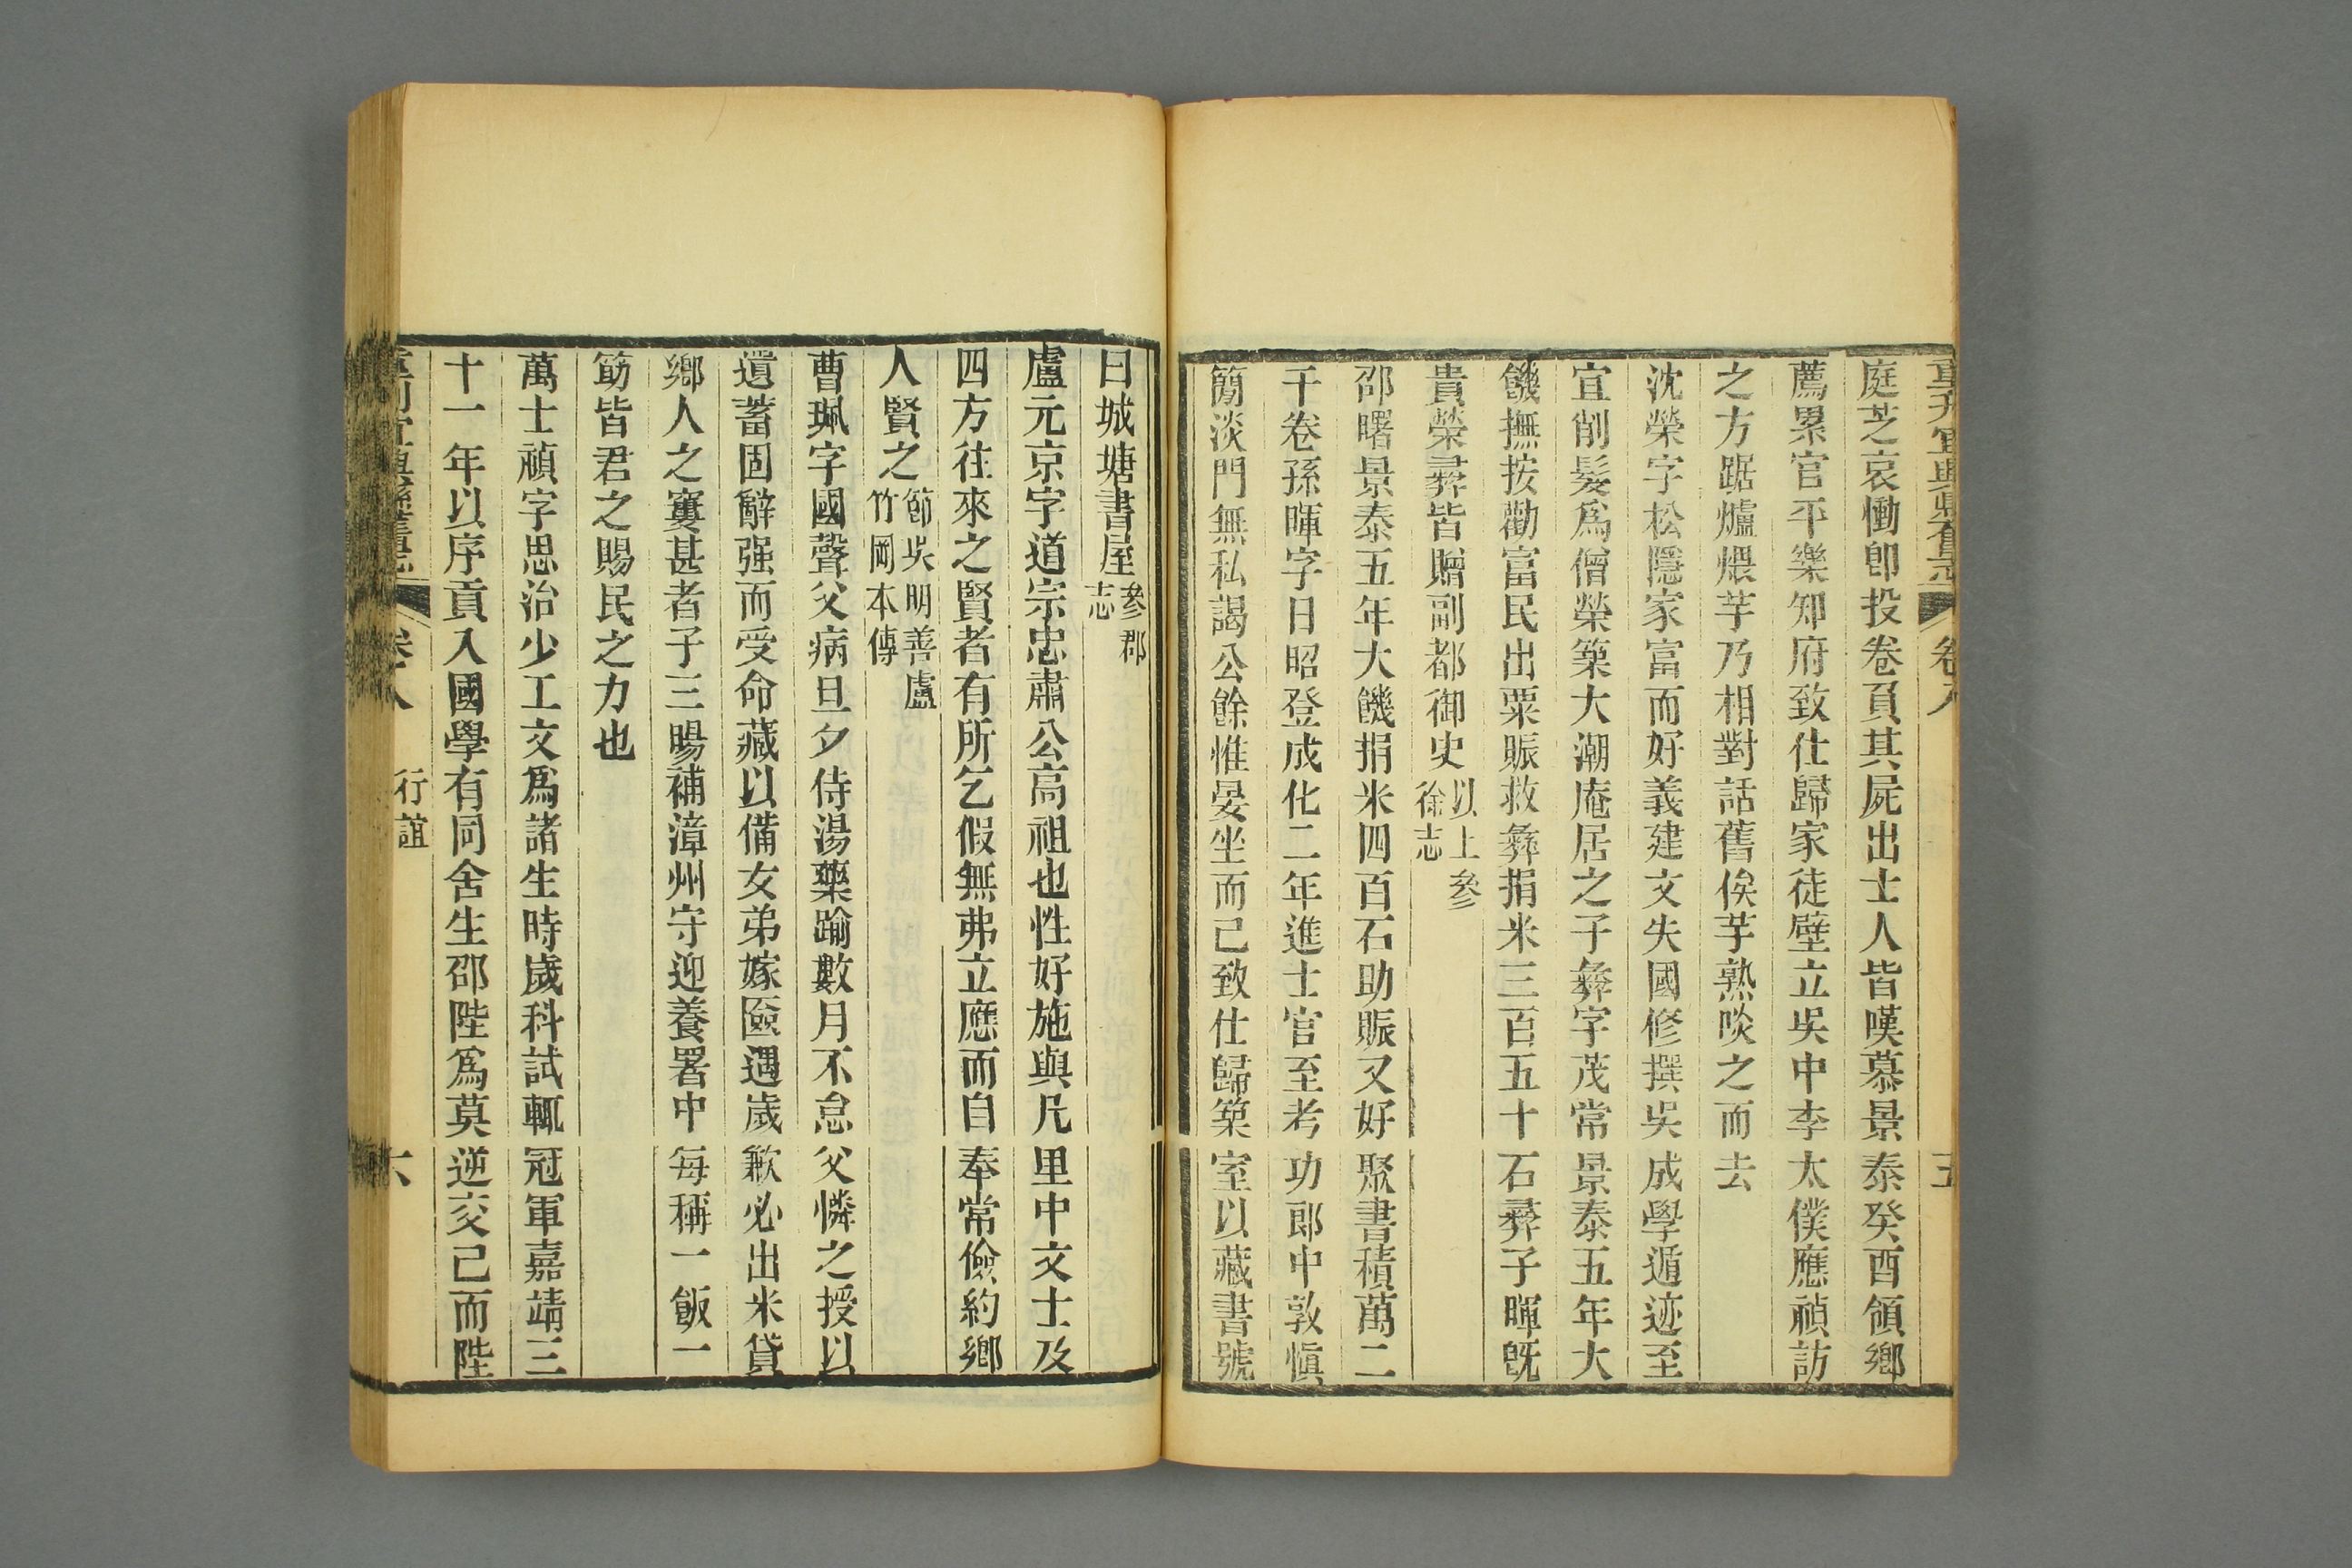 重刋宜興縣舊志 卷八 五
庭芝哀慟卽投卷負其屍出士人皆嘆慕景泰癸酉領鄉
薦累官平樂知府致仕歸家徒壁立吳中李太僕應禎訪
之方踞爐煨芋乃相對話舊俟芋熟啖之而去
沈榮字松隱家富而好義建文失國修撰吳成學遁迹至
宜削髮爲僧榮築大潮庵居之子彝字茂常景泰五年大
饑撫按勸富民出粟賑救彝捐米三百五十石彝子暉旣
貴榮彝皆贈副都御史以上參徐志
邵曙景泰五年大饑捐米四百石助賑又好聚書積萬二
千卷孫暉字日昭登成化二年進士官至考功郎中敦愼
簡淡門無私謁公餘惟晏坐而已致仕歸築室以藏書號
曰城塘書屋參郡志
盧元京字道宗忠肅公高祖也性好施與凡里中文士及
四方往來之賢者有所乞假無弗立應而自奉常儉約鄉
人賢之節吳明善盧竹岡本傳
曹珮字國聲父病旦夕侍湯藥踰數月不怠父憐之授以
遺蓄固辭强而受命藏以備女弟嫁匳遇歲歉必出米貸
鄉人之窶甚者子三暘補漳州守迎養署中每稱一飯一
筯皆君之賜民之力也
萬士禎字思治少工文爲諸生時歲科試輒冠軍嘉靖三
十一年以序貢入國學有同舍生邵陛爲莫逆交已而陛
重刋宜興縣舊志 卷八 行誼 六